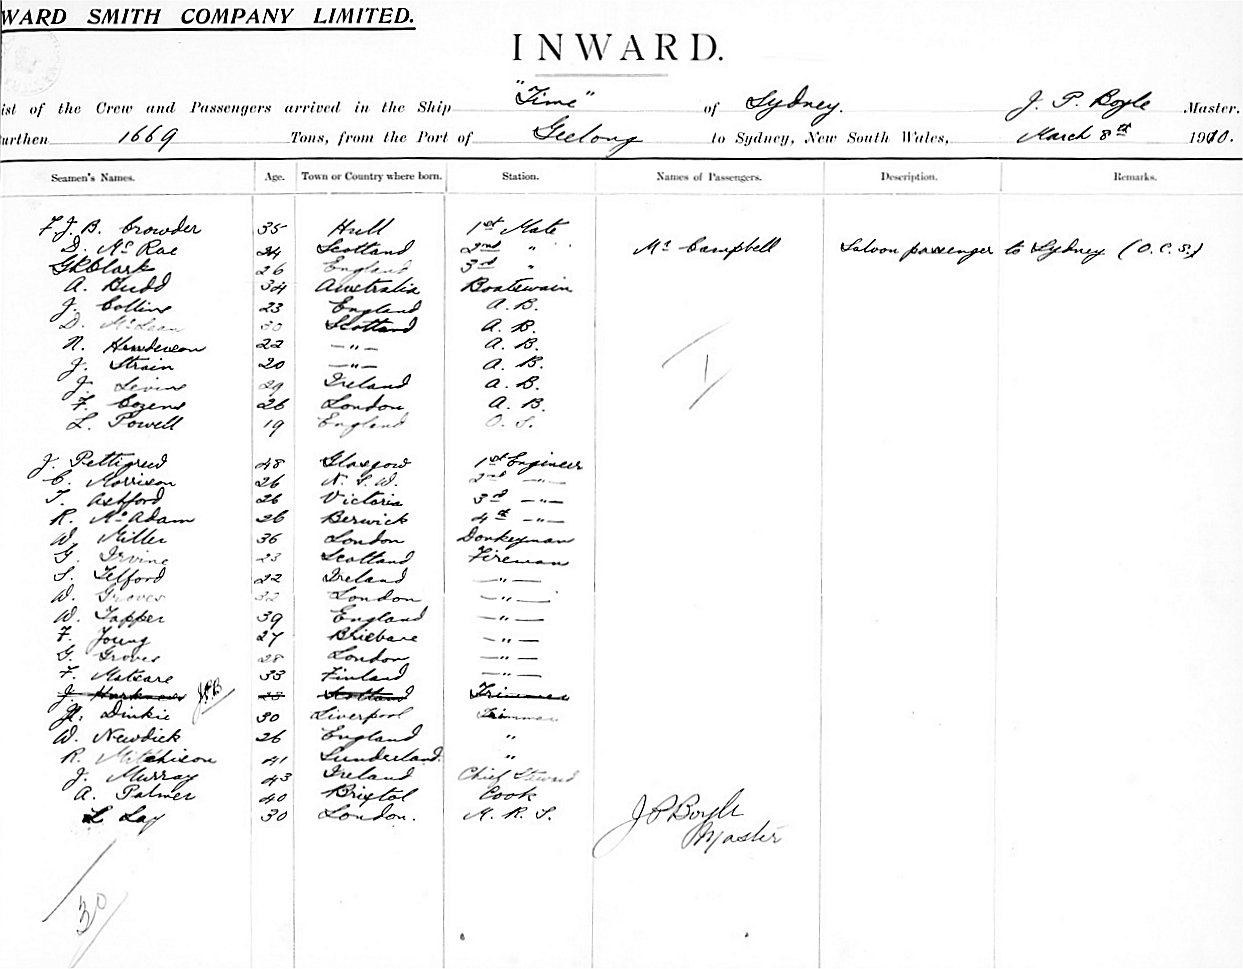 WARD SMITH COMPANY LIMITED.
INWARD.
ist of the Crew and Passengers arrived in the Ship "Time" of Sydney. J. P. Boyle Master.
urthen 1669 Tons, from the Port of Geelong to Sydney, New South Wales, March 8th 1910.
Seamen's Names. Age. Town or Country where born. Station. Names of Passengers. Description. Remarks.
F. J. B. Crowder 35 Hull 1st Mate
D. McRae 24 Scotland 2nd " Mr Campbell Saloon passenger to Sydney (O.C.S.)
G R Clark 26 England 3rd "
A. Budd 34 Australia Boatswain
J. Collins 23 England A. B.
D. McLean 30 Scotland A. B.
N. Henderson 22 —"— A. B.
J. Strain 20 —"— A. B.
J. Levine 29 Ireland A. B.
F. Cozens 26 London A. B.
L. Powell 19 England O. S.
1
J. Pettigred 48 Glasgow 1st Engineer
C. Morrison 26 N. S. W. 2nd —"—
T. Ashford 26 Victoria 3rd —"—
R. McAdam 26 Berwick 4th —"—
W. Miller 36 London Donkeyman
G. Irvine 23 Scotland Fireman
S. Telford 22 Ireland —"—
W. Groves 32 London —"—
W. Tapper 39 England —"—
F. Young 27 Brisbane —"—
G. Groves 28 London —"—
F. Matsare 33 Finland —"—
J. J.P.B 28 Scotland Trimmer
H. Dinkie 30 Liverpool Trimmer
W. Newdick 26 England "
R. Mitchison 41 Sunderland. "
J. Murray 43 Ireland Chief Steward
A. Palmer 40 Bristol Cook
L Lay 30 London. M. R. S.
J P Boyle
Master
30